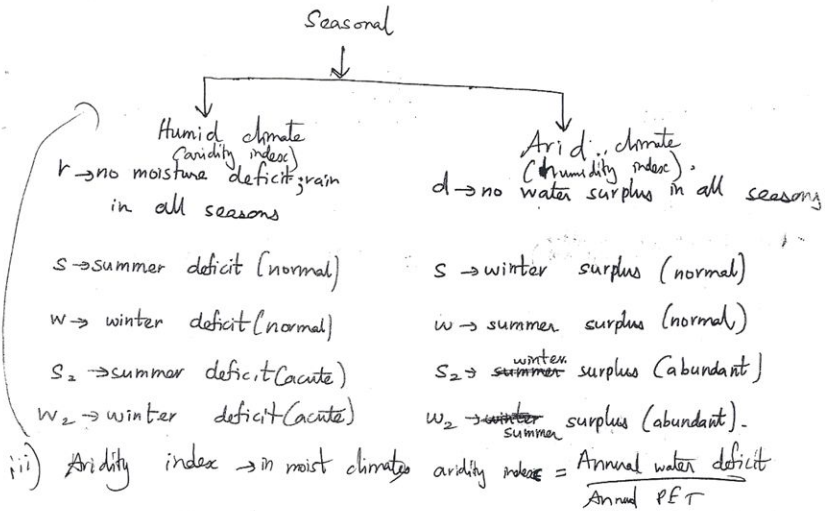 Seasonal
Humid climate
(aridity index)
r → no moisture deficit; rain
in all seasons
s → summer deficit (normal)
w → winter deficit (normal)
s₂ → summer deficit (acute)
w₂ → winter deficit (acute)
Arid climate
(humidity index).
d → no water surplus in all seasons
s → winter surplus (normal)
w → summer surplus (normal)
s₂ → winter surplus (abundant)
w₂ → summer surplus (abundant).
iii) Aridity index → in moist climates aridity index = Annual water deficit
Annual PET